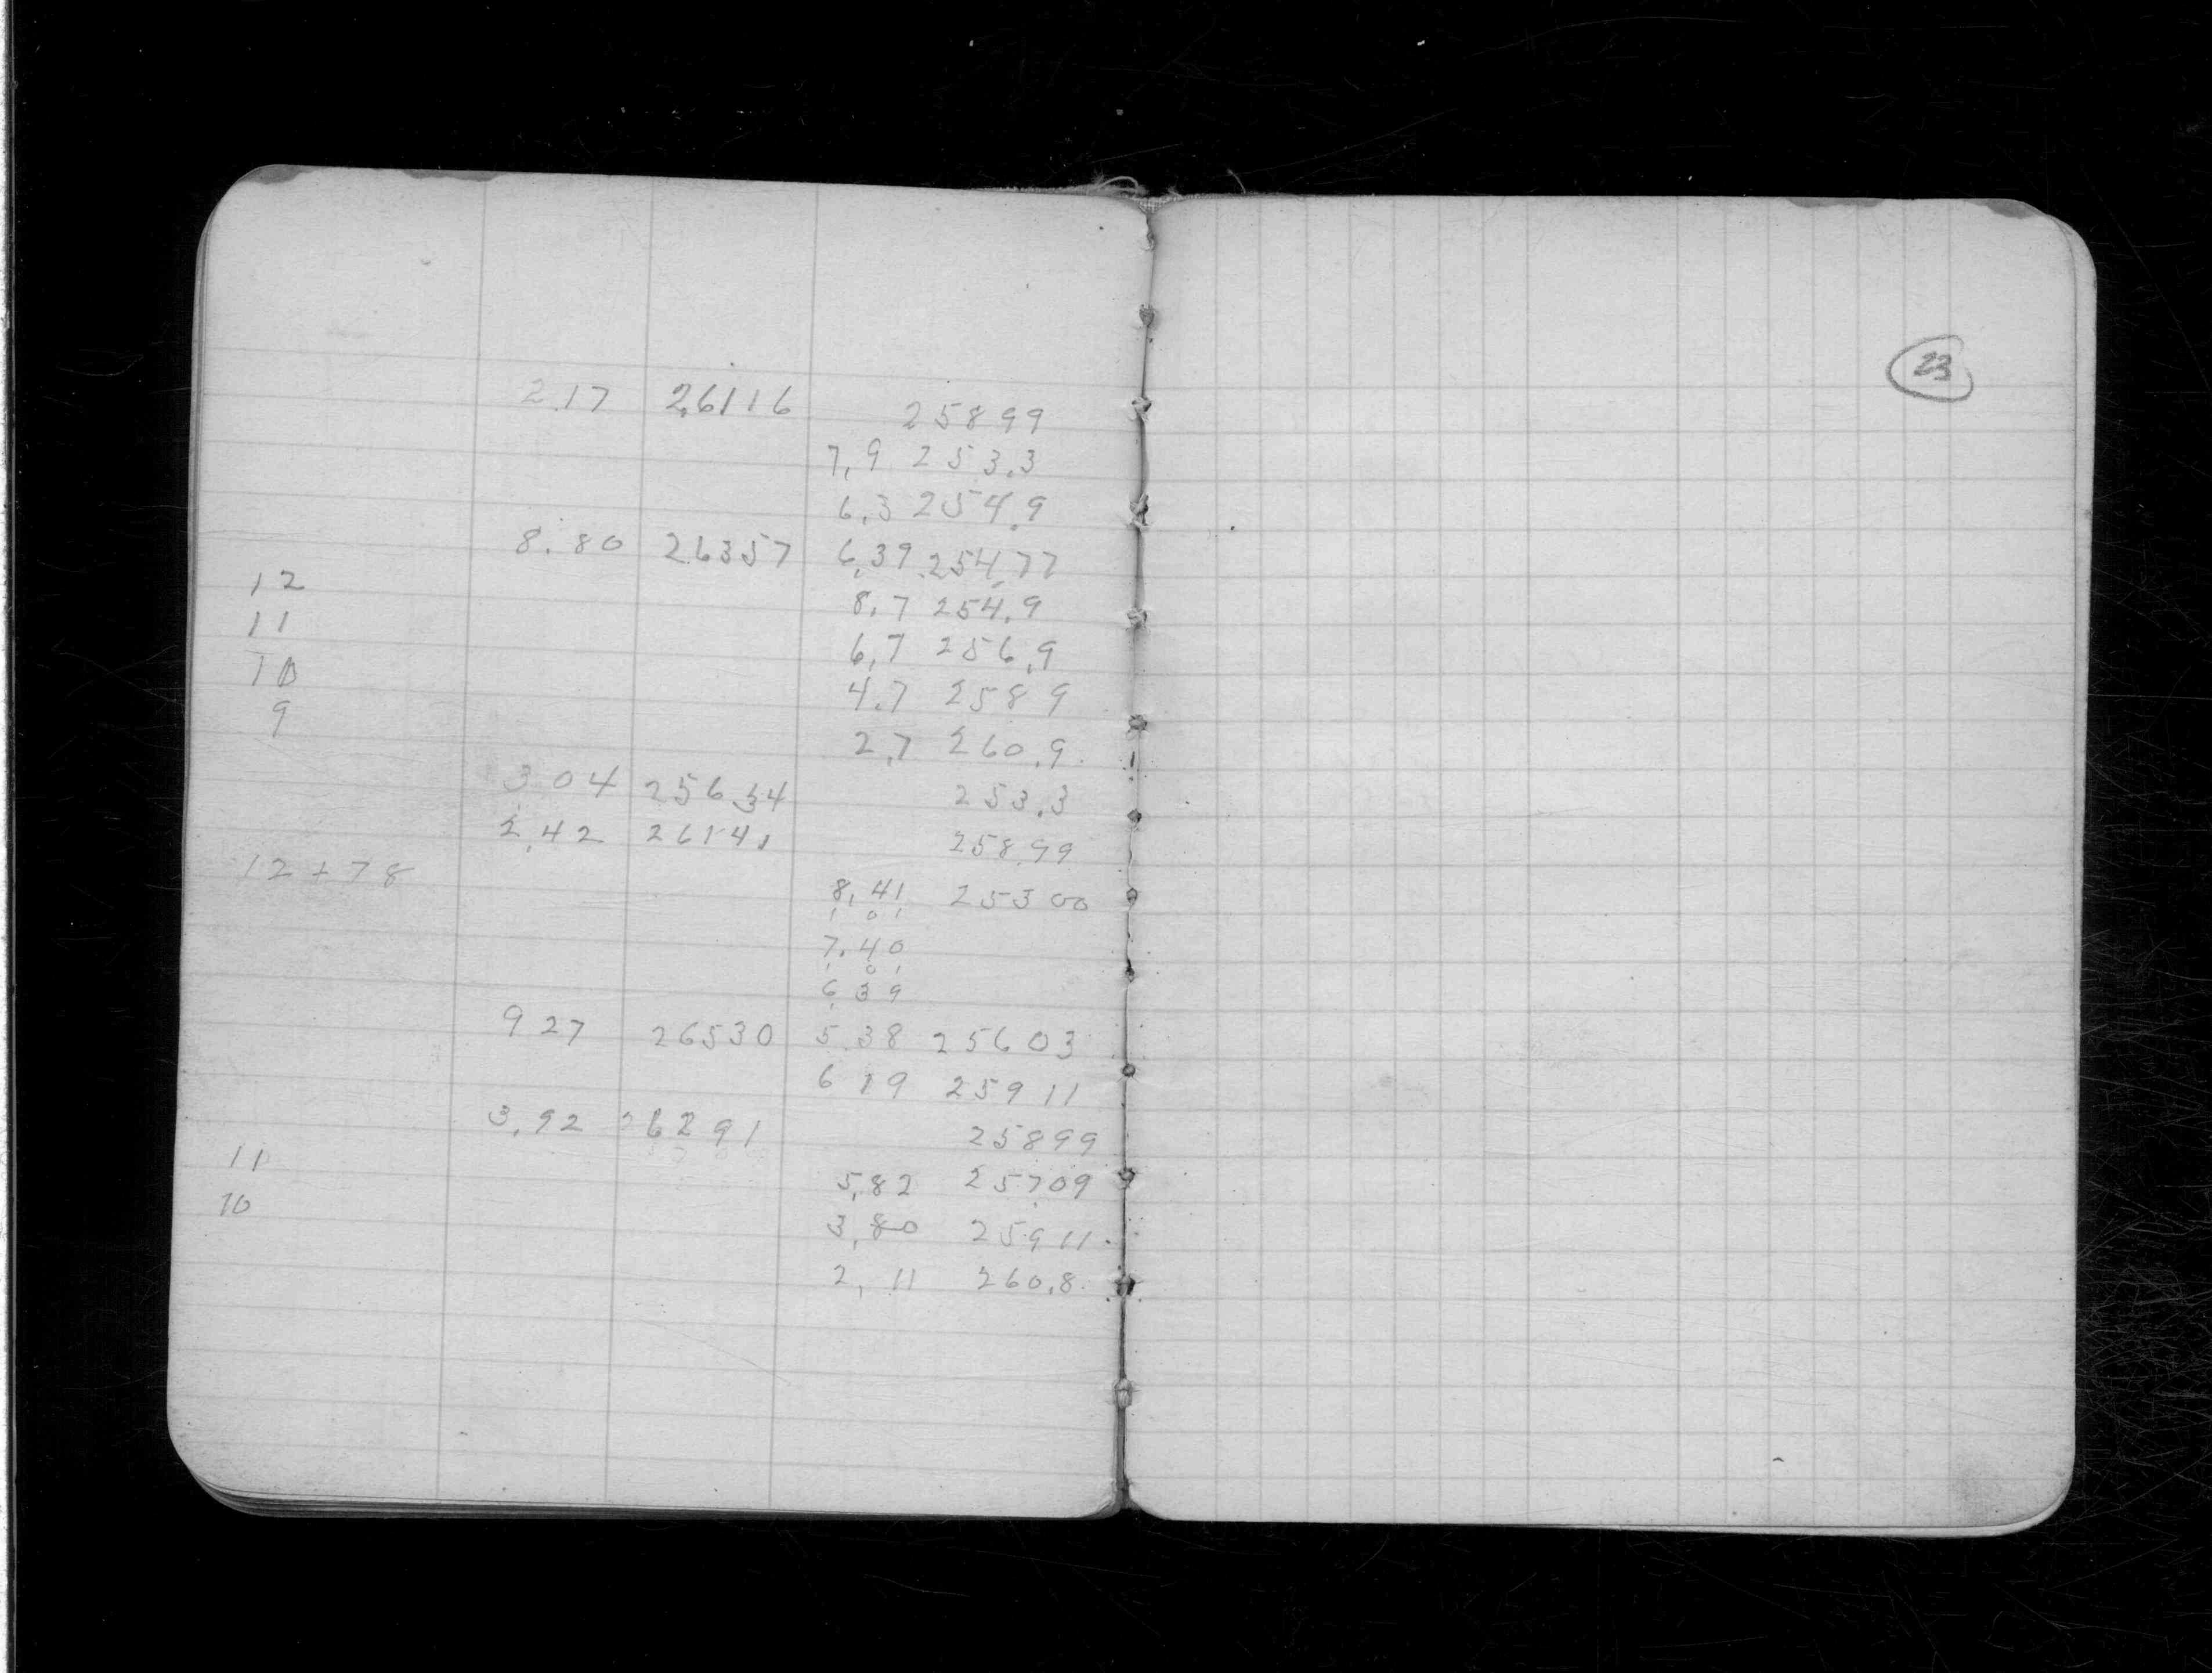 2.17 26116 25899
7.9 253.3
6.3 254.9
8.80 26357 6.39 25477
12 8.7 254.9
11 6.7 256.9
10 4.7 258 9
9 2.7 260.9
3 04 256 34 253.3
2.42 26141 258.99
12+78 8.41 253 00
1 0 1
7.40
1 0 1
6 39
9 27 26530 5.38 25603
6 19 259 11
3.92 26291 25899
11 5.82 25709
10 3.80 25911
2.11 260.8
23